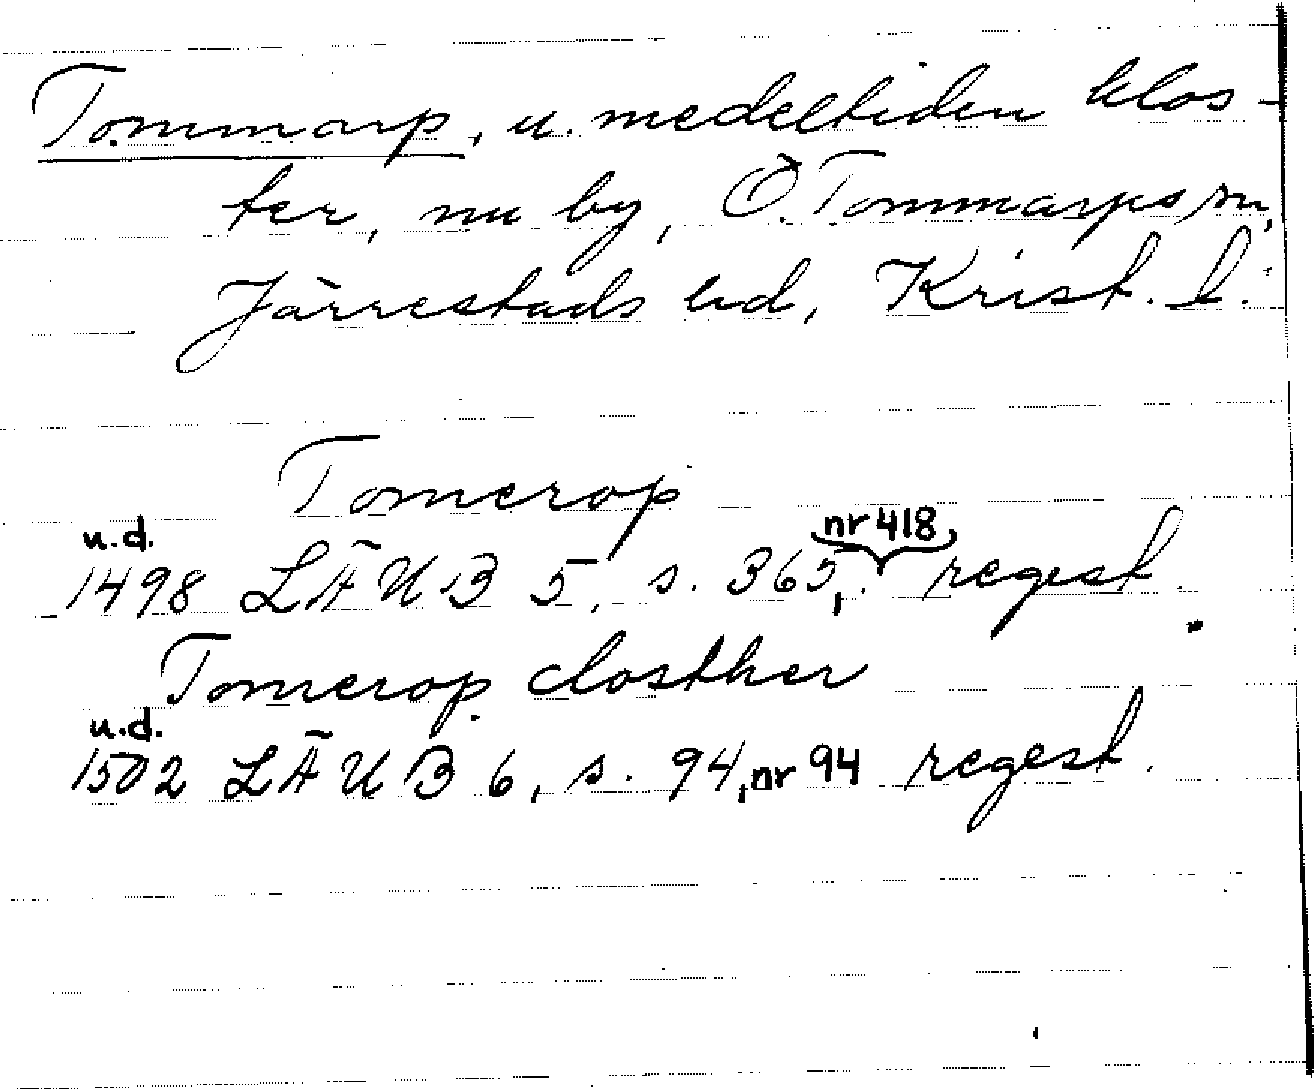 Tommarp, u. medeltiden klos-
ter, nu by, Ö. Tommarps sn,
Järrestads hd, Krist. l.
Tomerop
u.d. nr 418
1498 LÄUB 5, s. 365, regest.
Tomerop closther
u.d.
1502 LÄUB 6, s. 94, nr 94 regest.